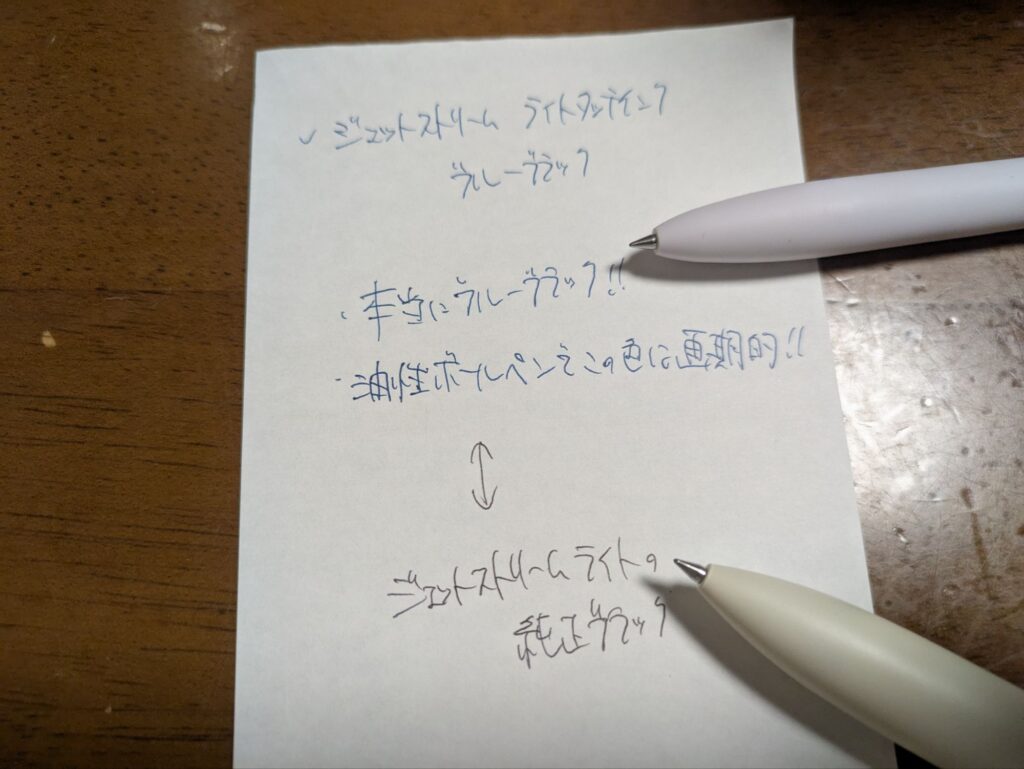 ✓ ジェットストリーム ライトタッチインク
ブルーブラック
・本当にブルーブラック!!
・油性ボールペンでこの色は画期的!!
↕
ジェットストリームライトの
純正ブラック